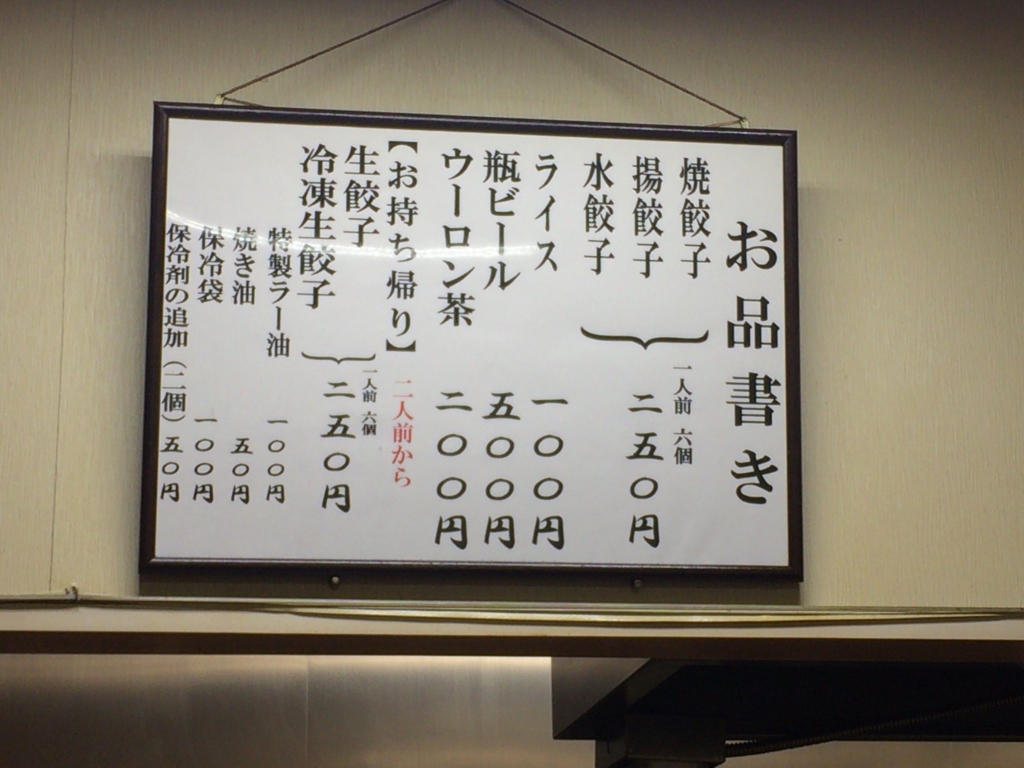 お品書き
焼餃子
揚餃子
水餃子
一人前 六個
二五〇円
ライス 一〇〇円
瓶ビール 五〇〇円
ウーロン茶 二〇〇円
【お持ち帰り】 二人前から
生餃子
冷凍生餃子
一人前 六個
二五〇円
特製ラー油 一〇〇円
焼き油 五〇円
保冷袋 一〇〇円
保冷剤の追加(二個) 五〇円